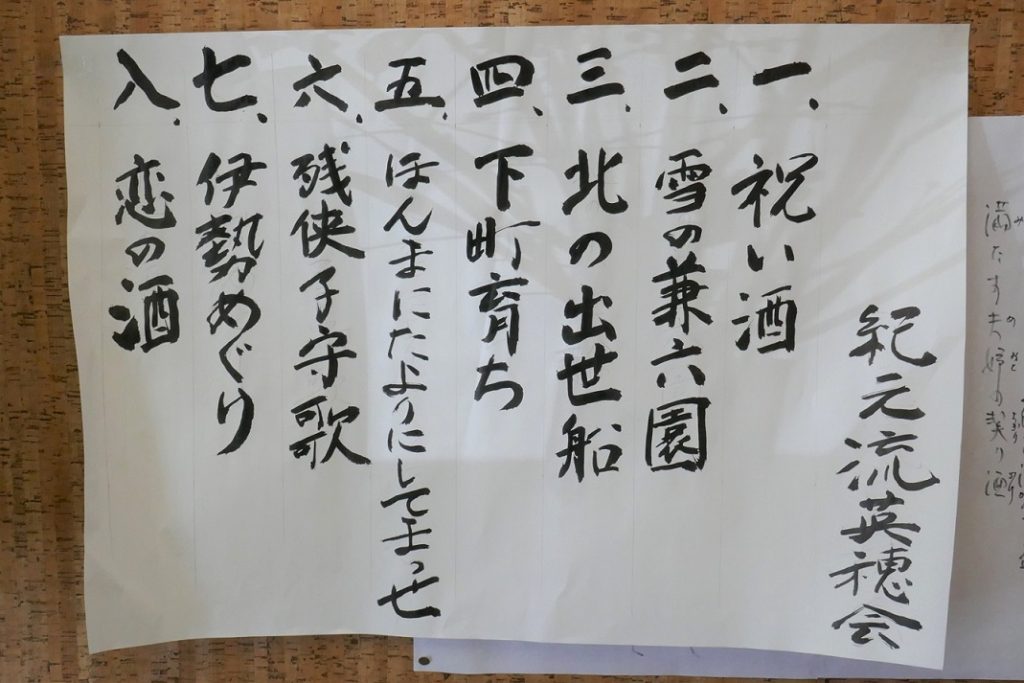 紀元流英穂会
一、祝い酒
二、雪の兼六園
三、北の出世船
四、下町育ち
五、ほんまにたよりにしてまっせ
六、残侠子守歌
七、伊勢めぐり
八、恋の酒